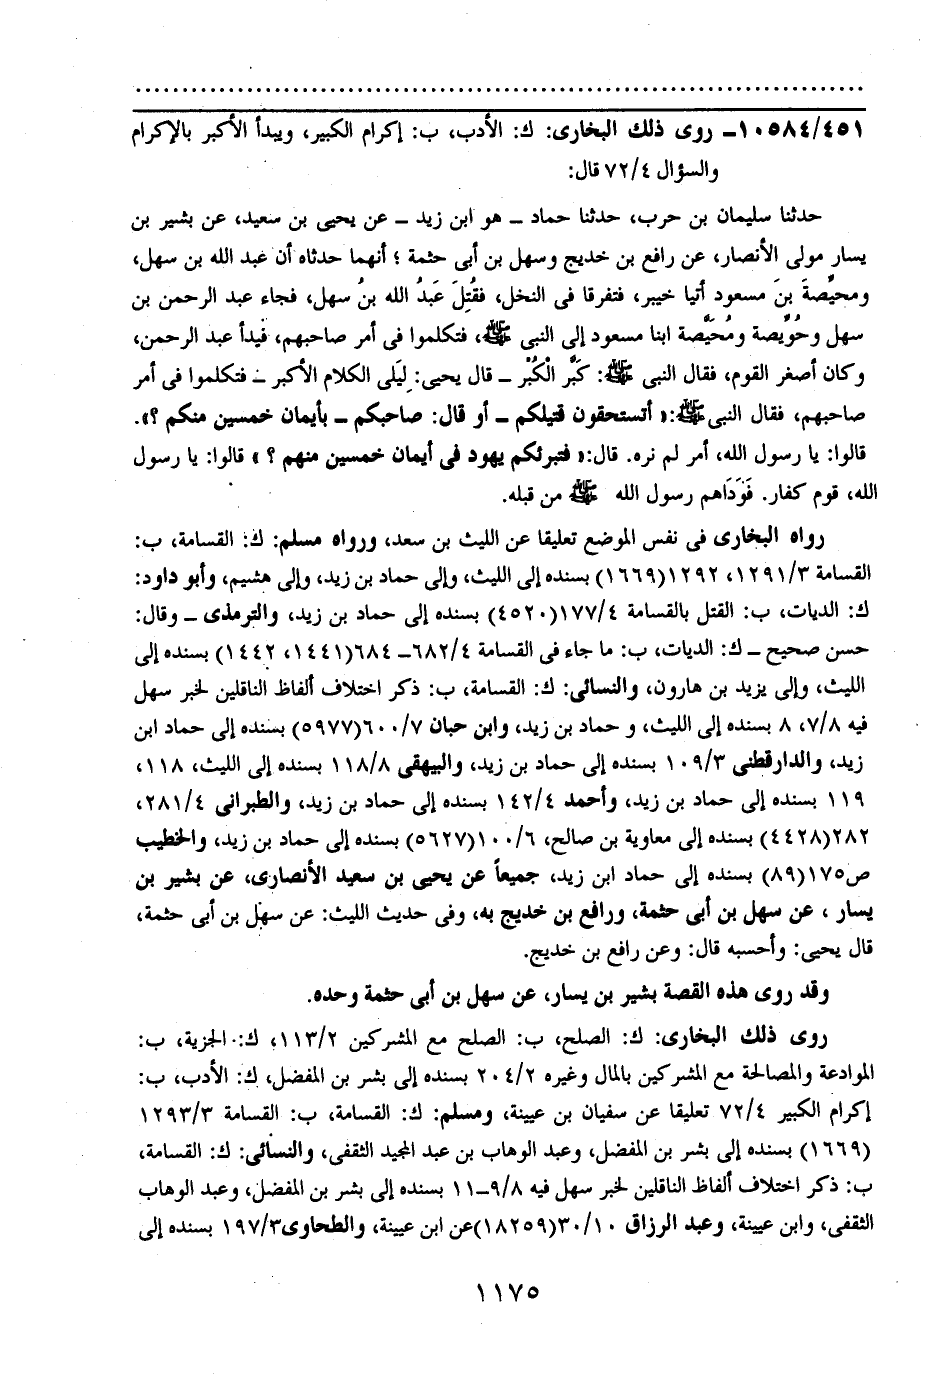 ١٠٥٨٤/٤٥١ـ روى ذلك البخارى: ك: الأدب، ب: إكرام الكبير، ويبدأ الأكبر بالإكرام
والسؤال ٧٢/٤ قال:
حدثنا سليمان بن حرب، حدثنا حماد ـ هو ابن زيد ـ عن يحيى بن سعيد، عن بشير بن
يسار مولى الأنصار، عن رافع بن خديج وسهل بن أبى حثمة ؛ أنهما حدثاه أن عبد الله بن سهل،
ومحيِّصةَ بنَ مسعود أتيا خيبر، فتفرقا فى النخل، فقُتِلَ عَبدُ الله بنُ سهل، فجاء عبد الرحمن بن
سهل وحُوَيِّصة ومُحَيِّصة ابنا مسعود إلى النبى ﷺ، فتكلموا فى أمر صاحبهم، فبدأ عبد الرحمن،
وكان أصغر القوم، فقال النبى ﷺ: كَبَّر الْكُبْر ـ قال يحيى: لِيَلى الكلام الأكبر ـ فتكلموا فى أمر
صاحبهم، فقال النبى ﷺ:« أتستحقون قتيلكم ـ أو قال: صاحبكم ـ بأيمان خمسين منكم ؟».
قالوا: يا رسول الله، أمر لم نره. قال:« فتبرئكم يهود فى أيمان خمسين منهم ؟ » قالوا: يا رسول
الله، قوم كفار. فَوَدَاهم رسول الله ﷺ من قبله.
رواه البخارى فى نفس الموضع تعليقا عن الليث بن سعد، ورواه مسلم: ك: القسامة، ب:
القسامة ١٢٩١/٣، ١٢٩٢(١٦٦٩) بسنده إلى الليث، وإلى حماد بن زيد، وإلى هشيم، وأبو داود:
ك: الديات، ب: القتل بالقسامة ١٧٧/٤(٤٥٢٠) بسنده إلى حماد بن زيد، والترمذى ـ وقال:
حسن صحيح ـ ك: الديات، ب: ما جاء فى القسامة ٦٨٢/٤ـ ٦٨٤(١٤٤١، ١٤٤٢) بسنده إلى
الليث، وإلى يزيد بن هارون، والنسائى: ك: القسامة، ب: ذكر اختلاف ألفاظ الناقلين لخبر سهل
فيه ٧/٨، ٨ بسنده إلى الليث، و حماد بن زيد، وابن حبان ٦٠٠/٧(٥٩٧٧) بسنده إلى حماد ابن
زيد، والدارقطنى ١٠٩/٣ بسنده إلى حماد بن زيد، والبيهقى ١١٨/٨ بسنده إلى الليث، ١١٨،
١١٩ بسنده إلى حماد بن زيد، وأحمد ١٤٢/٤ بسنده إلى حماد بن زيد، والطبرانى ٢٨١/٤،
٢٨٢(٤٤٢٨) بسنده إلى معاوية بن صالح، ١٠٠/٦(٥٦٢٧) بسنده إلى حماد بن زيد، والخطيب
ص١٧٥(٨٩) بسنده إلى حماد ابن زيد، جميعاً عن يحيى بن سعيد الأنصارى، عن بشير بن
يسار ، عن سهل بن أبى حثمة، ورافع بن خديج به، وفى حديث الليث: عن سهل بن أبى حثمة،
قال يحيى: وأحسبه قال: وعن رافع بن خديج.
وقد روى هذه القصة بشير بن يسار، عن سهل بن أبى حثمة وحده.
روى ذلك البخارى: ك: الصلح، ب: الصلح مع المشركين ١١٣/٢، ك: الجزية، ب:
الموادعة والمصالحة مع المشركين بالمال وغيره ٢٠٤/٢ بسنده إلى بشر بن المفضل، ك: الأدب، ب:
إكرام الكبير ٧٢/٤ تعليقا عن سفيان بن عيينة، ومسلم: ك: القسامة، ب: القسامة ١٢٩٣/٣
(١٦٦٩) بسنده إلى بشر بن المفضل، وعبد الوهاب بن عبد المجيد الثقفى، والنسائى: ك: القسامة،
ب: ذكر اختلاف ألفاظ الناقلين لخبر سهل فيه ٩/٨ـ١١ بسنده إلى بشر بن المفضل، وعبد الوهاب
الثقفى، وابن عيينة، وعبد الرزاق ٣٠/١٠(١٨٢٥٩)عن ابن عيينة، والطحاوى١٩٧/٣ بسنده إلى
١١٧٥